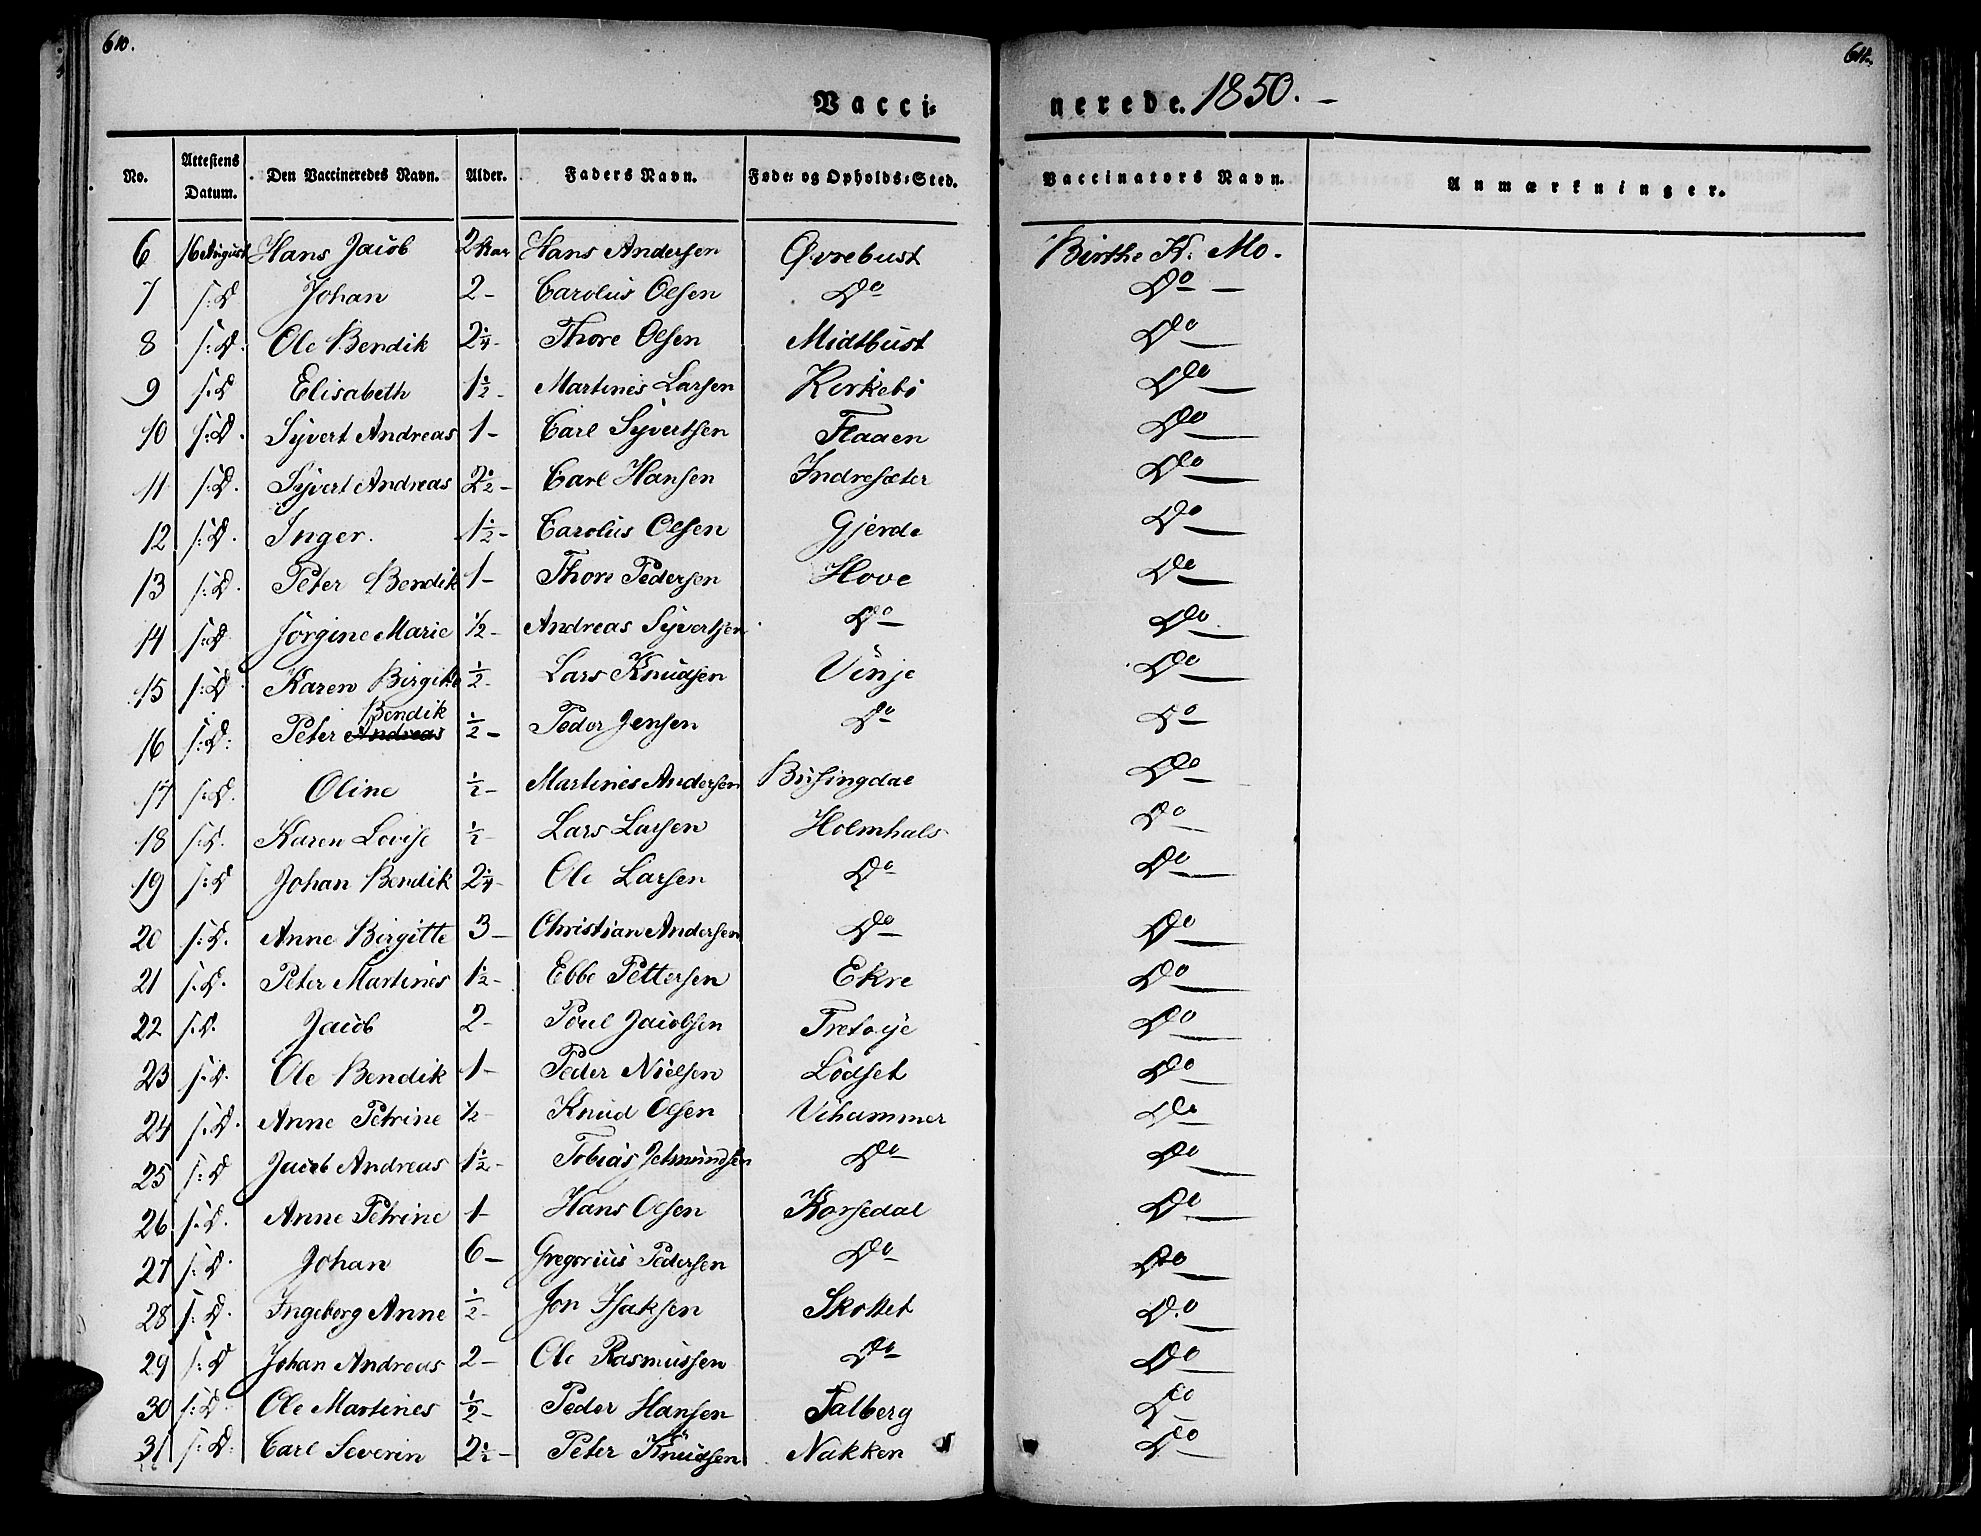 610.
611.
Vacci-
nerede. 1850. -
No. Attestens Datum. Den Vaccineredes Navn. Alder. Faders Navn. Føde- og Opholds-Sted. Vaccinators Navn. Anmærkninger.
6 16 August Hans Jacob 2 Hans Andersen Øvrebust Birthe K. Mo.
7 s: D Johan 2 - Carolus Olsen Do Do -
8 s: D. Ole Bendik 2 1/4 - Thore Olsen Midtbust Do
9 s: D Elisabeth 1 1/2 - Martines Larsen Kirkebö Do
10 s: D. Syvert Andreas 1 - Carl Syvertsen Flaaen Do
11 s: D. Syvert Andreas 2 1/2 - Carl Hansen Indresæter Do
12 s: D. Inger. 1 1/2 - Carolus Olsen Gjerde Do
13 s: D. Peter Bendik 1 - Thore Pedersen Hove Do
14 s: D. Jörgine Marie 1/2 - Andreas Syvertsen Do Do
15 s: D. Karen Birgitte 1/2 - Lars Knudsen Vinje Do
16 s: D: Peter ~~Andreas~~ Bendik 1/2 - Peder Jensen Do Do
17 s: D. Oline 1/2 - Martines Andersen Busingdal Do
18 s: D. Karen Lovise 1/2 - Lars Larsen Holmhals Do
19 s: D Johan Bendik 2 1/4 - Ole Larsen Do Do
20 s: D. Anne Birgitte 3 - Christian Andersen Do Do
21 s: D. Peter Martines 1 1/2 - Ebbe Pettersen Ekre Do
22 s: D. Jacob 2 - Poul Jacobsen Do
23 s: D. Ole Bendik 1 - Peder Nielsen Lödset Do
24 s: D. Anne Petrine 1/2 - Knud Olsen Vihammer Do
25 s: D Jacob Andreas 1 1/2 - Tobias Do Do
26 s: D. Anne Petrine 1 - Hans Olsen Korsedal Do
27 s: D. Johan 6 - Gregorius Pedersen Do Do
28 s: D. Ingeborg Anne 1/2 - Jon Isaksen Skottet Do
29 s: D Johan Andreas 2 - Ole Rasmussen Do Do
30 s: D. Ole Martines 1/2 - Peder Hansen Falberg Do
31 s: D: Carl Severin 2 1/2 - Peter Knudsen Nakken Do